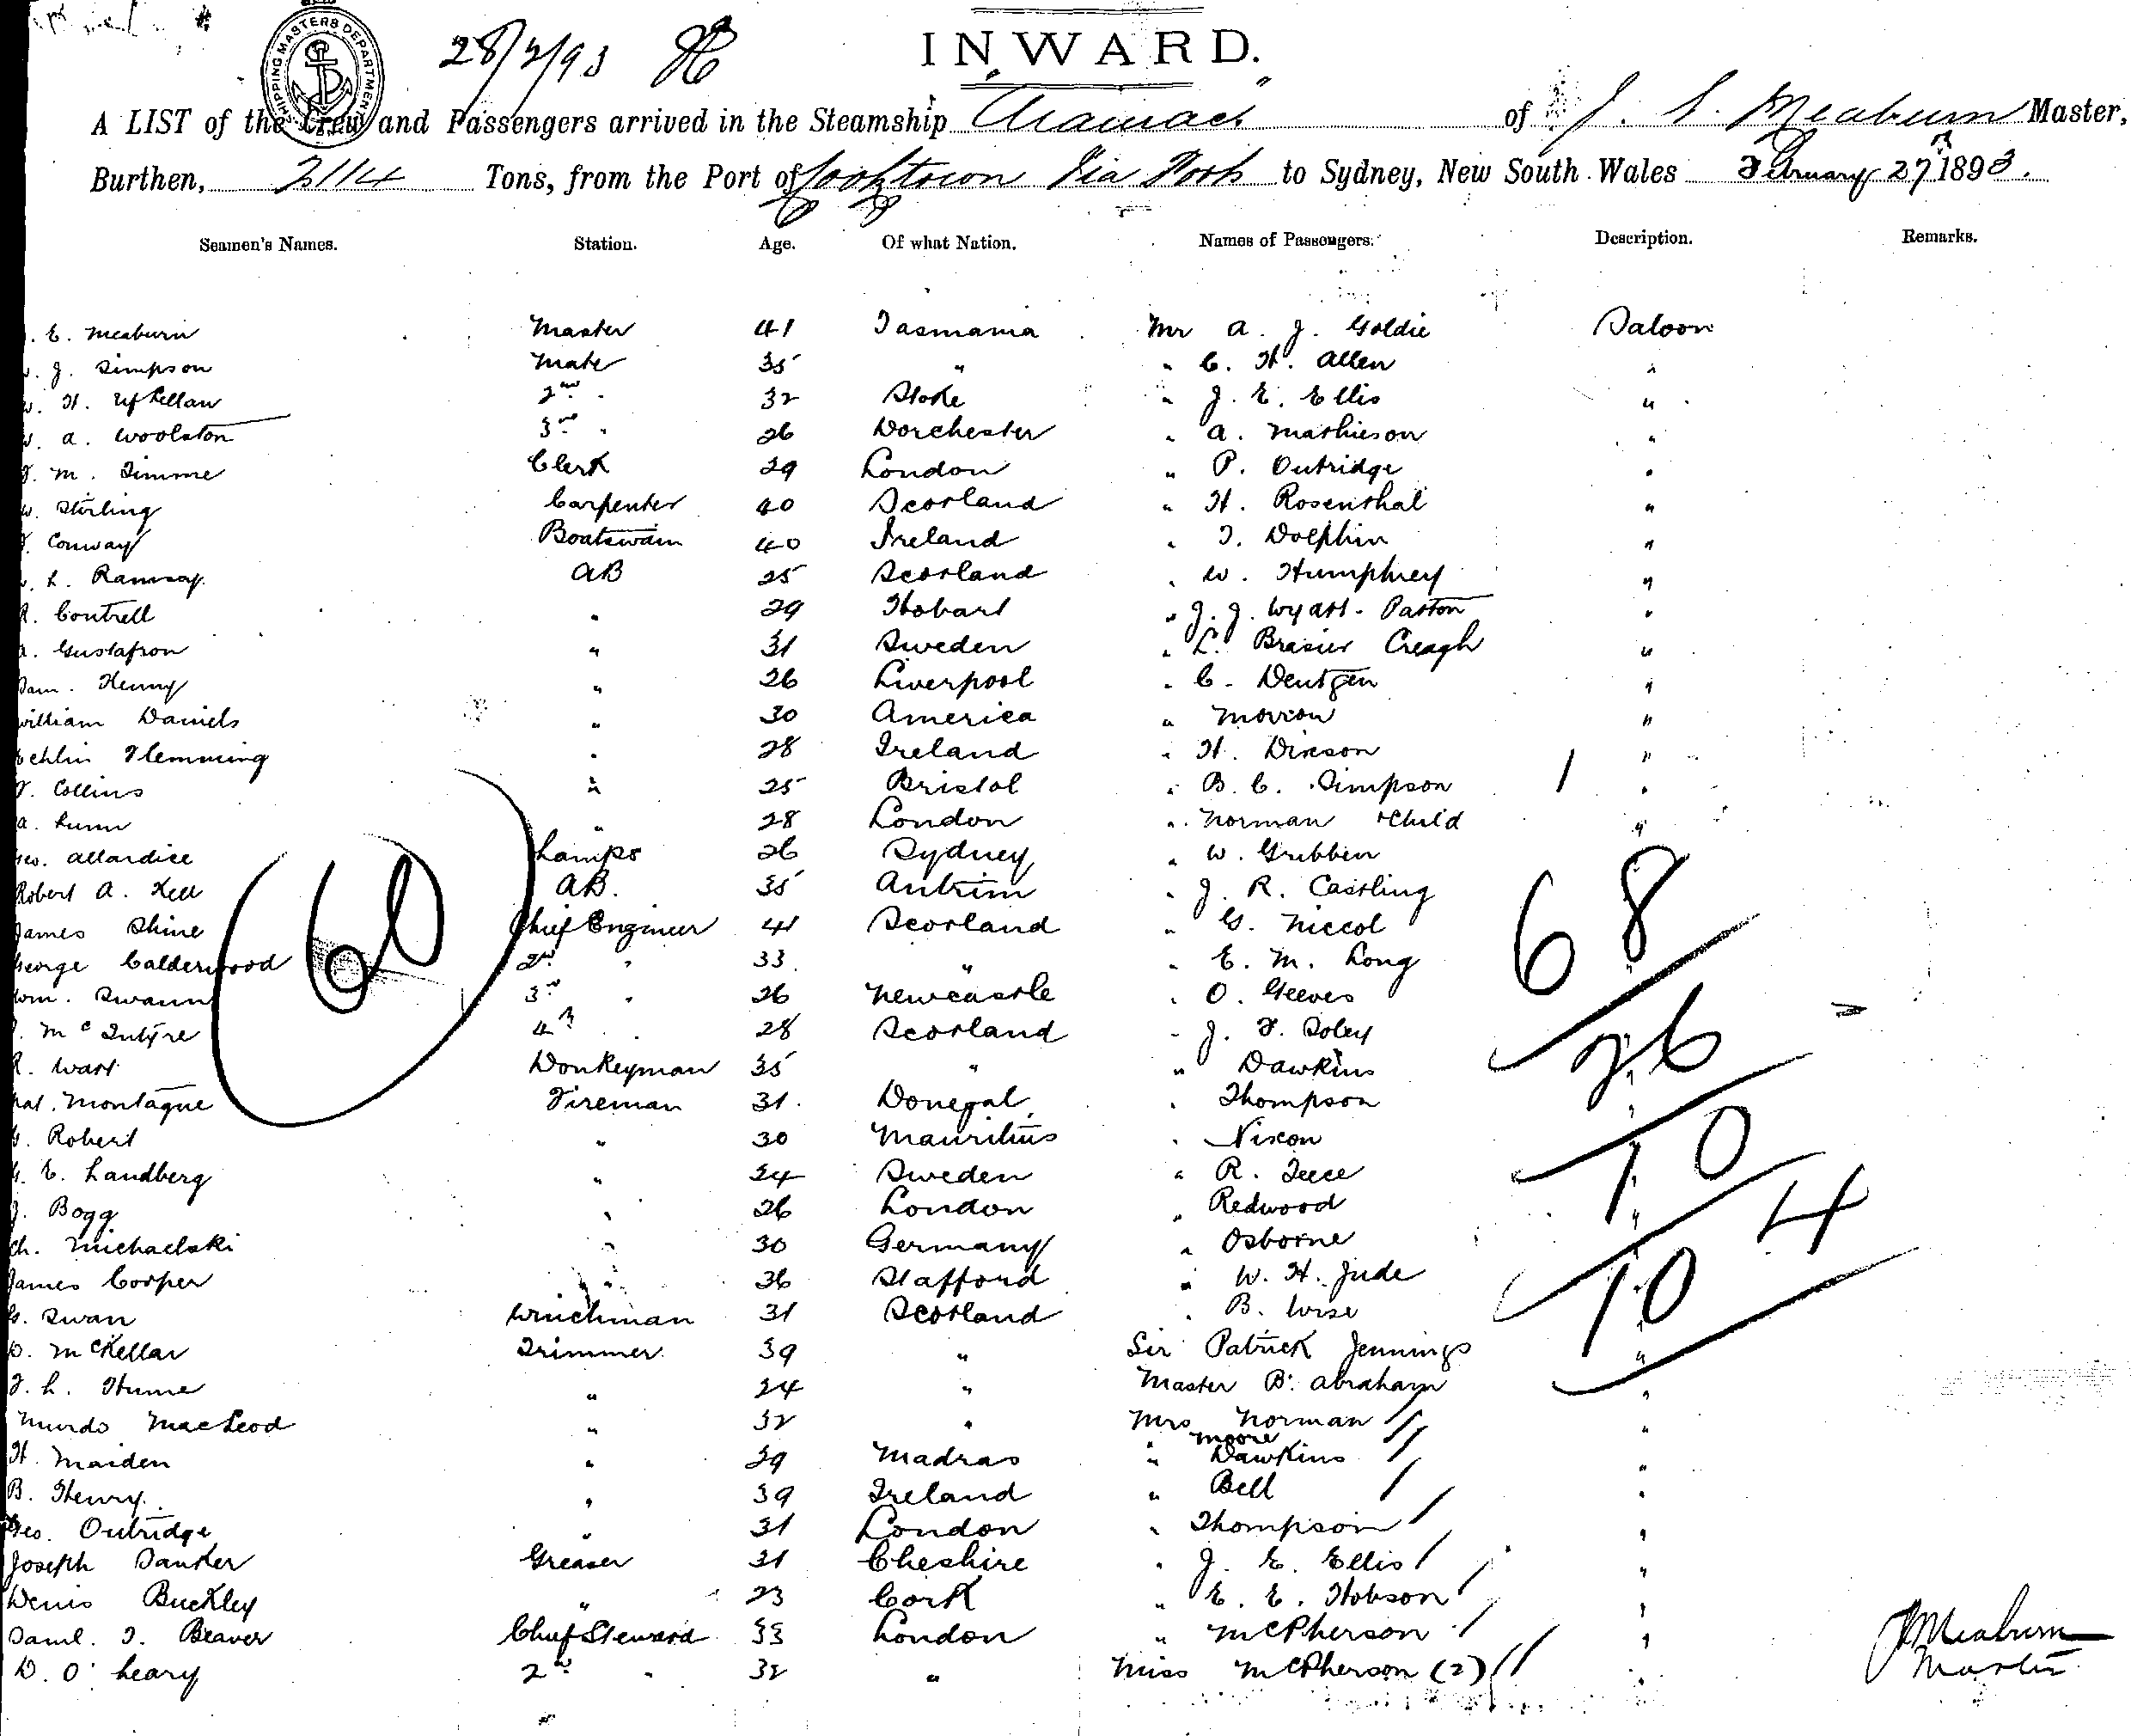 SHIPPING MASTERS DEPARTMENT
28/2/93
INWARD.
A LIST of the Crew and Passengers arrived in the Steamship "Aramac" of J. E. Meaburn Master,
Burthen, 2114 Tons, from the Port of Cooktown Via Ports to Sydney, New South Wales February 27th 1893.
Seamen's Names. Station. Age. Of what Nation. Names of Passengers. Description. Remarks.
. E. Meaburn Master 41 Tasmania Mr A. J. Goldie Saloon
. J. Simpson Mate 35 " " C. H. Allen "
W. H. 2nd " 32 Stoke " J. E. Ellis "
W. A. Woolston 3rd " 26 Dorchester " A. Mathieson "
. M. Timme Clerk 29 London " P. Outridge "
W. Stirling Carpenter 40 Scotland " H. Rosenthal "
. Conway Boatswain 40 Ireland " T. Dolphin "
. L. Ramsay AB 25 Scotland " W. Humphrey "
R. Contrell " 29 Hobart " J. J. Wyatt-Paston "
. Gustafson " 31 Sweden " L. Brasier Creagh "
Sam. Henry " 26 Liverpool " C. Deutgen "
William Daniels " 30 America " Morrow "
Echlin Flemming " 28 Ireland " H. Dixson "
. Collins " 25 Bristol " B. C. Simpson 1 "
A. Lunn " 28 London " Norman + Child "
Geo. Allardice Lamps 26 Sydney " W. Gribben "
Robert A. Kell AB. 35 Antrim " J. R. Castling
James Shine Chief Engineer 41 Scotland " G. Niccol 68
George Calderwood 60 2nd " 33 " " E. M. Long "
Wm. Swann 3rd " 26 Newcastle " O. Geeves
. McIntyre 4th " 28 Scotland " J. F. Soley "
R. Watt Donkeyman 35 " " Dawkins 26
Pat. Montague Fireman 31 Donegal " Thompson "
. Robert " 30 Mauritius " Nixon
. E. Landberg " 24 Sweden " R. Teece 10
J. Bogg " 26 London " Redwood "
Ch. Michaelski " 30 Germany " Osborne 4
James Cooper " 36 Stafford " W. H. Jude
G. Swan Winchman 31 Scotland " B. Wise 10
D. McKellar Trimmer 39 " Sir Patrick Jennings "
. L. Hume " 24 " Master B. Abraham "
Murdo MacLeod " 32 " Mrs Norman "
Moore
H. Maiden " 29 Madras " Dawkins "
B. Henry " 39 Ireland " Bell "
Geo. Outridge " 31 London " Thompson "
Joseph Danker Greaser 31 Cheshire " J. E. Ellis "
Denis Buckley " 23 Cork " E. E. Hobson "
Saml. T. Beaver Chief Steward 33 London " McPherson "
D. O'Leary 2nd " 32 " Miss McPherson (2) "
J Meaburn
Master